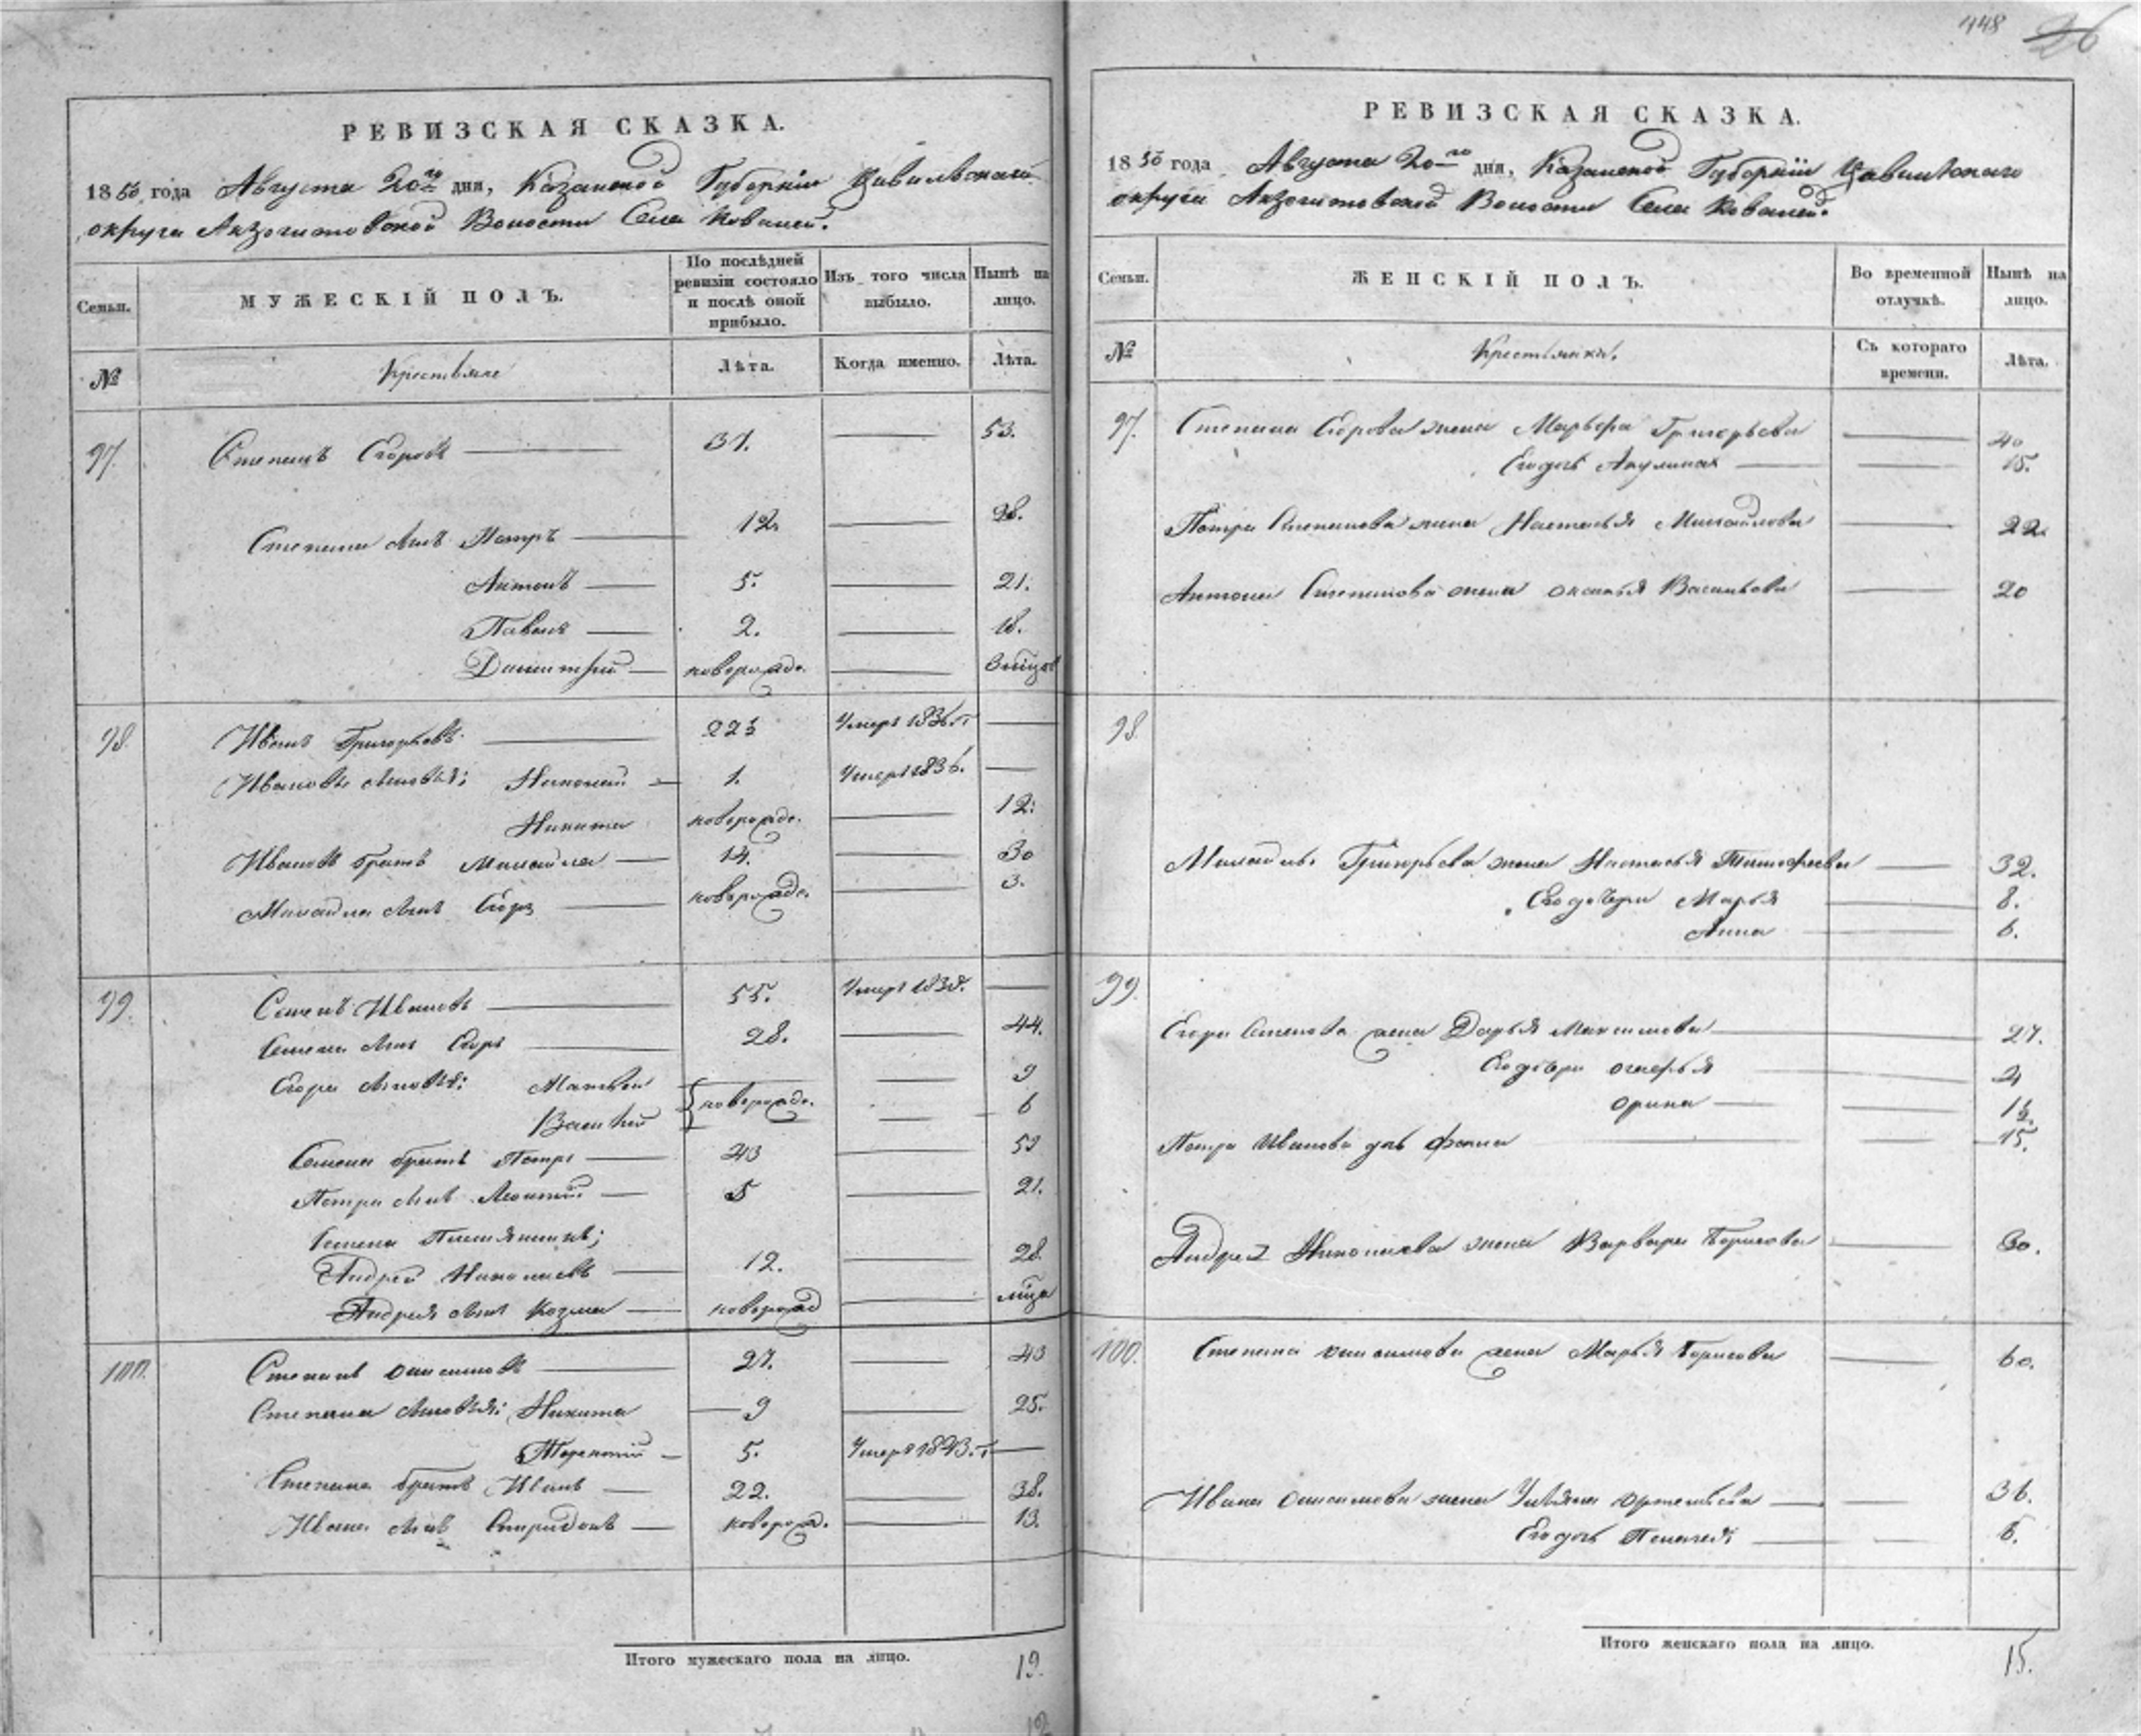 448 26
РЕВИЗСКАЯ СКАЗКА.
1850 года Августа 20го дня, Казанской Губернии Цивильскаго
округа Акзегитовской Волости Села Ковалей.
Семьи.
МУЖЕСКІЙ ПОЛЪ.
По послѣдней ревизіи состояло и послѣ оной прибыло.
Изъ того числа выбыло.
Нынѣ на лицо.
№
Крестьяне
Лѣта.
Когда именно.
Лѣта.
97. Степанъ Егоровъ 37. 53.
Степана сынъ Петръ 12. 28.
Антонъ 5. 21.
Павелъ 2. 18.
Дмитрій новорожд.
98. Иванъ Григорьевъ 22½ Умеръ 1836.
Ивановы сыновья: Николай 1. Умеръ 1836.
Никита новорожд. 12.
Ивановъ братъ Михайла 14. 30
Михайла сынъ Егоръ новорожд. 3.
99. Семенъ Ивановъ 55. Умеръ 1838.
Семена сынъ Егоръ 28. 44.
Егора сыновья: Матвей 9
Василий новорожд. 6
Семена братъ Петръ
Петра сынъ Леонтій 5 21.
Семена Племянникъ;
Андрей Николаевъ 12. 28.
Андрея сынъ Козма новорожд
100. Степанъ Онисимовъ 27. 43
Степана сыновья: Никита 9 25.
Терентій 5. Умеръ 1843.
Степана братъ Иванъ 22. 38.
Ивана сынъ Спиридонъ новорожд. 13.
Итого мужескаго пола на лицо. 19.
РЕВИЗСКАЯ СКАЗКА.
1850 года Августа 20го дня, Казанской Губерніи Цивильскаго
округа Акзегитовской Волости Села Ковалей.
Семьи.
ЖЕНСКІЙ ПОЛЪ.
Во временной отлучкѣ.
Нынѣ на лицо.
№
Крестьянки.
Съ котораго времени.
Лѣта.
97. Степана Егорова жена Марьфа Григорьева 40
Егодочь Акулина 15.
Петра Степанова жена Настасья Михайлова 22.
Антона Степанова жена Васильева 20
98.
Михайлы Григорьева жена Настасья Тимофеева 32.
Егодочери Марья 8.
Анна 6.
99.
Егора Семенова жена Дарья Максимова 27.
Егодочери
Орина 1½
Петра Иванова дочь 15.
Андрея Николаева жена Варвара Борисова 30.
100. Степана Онисимова жена Марья Борисова 60.
Ивана Онисимова жена Ульяна 36.
Егодочь Пелагея 6.
Итого женскаго пола на лицо. 15.